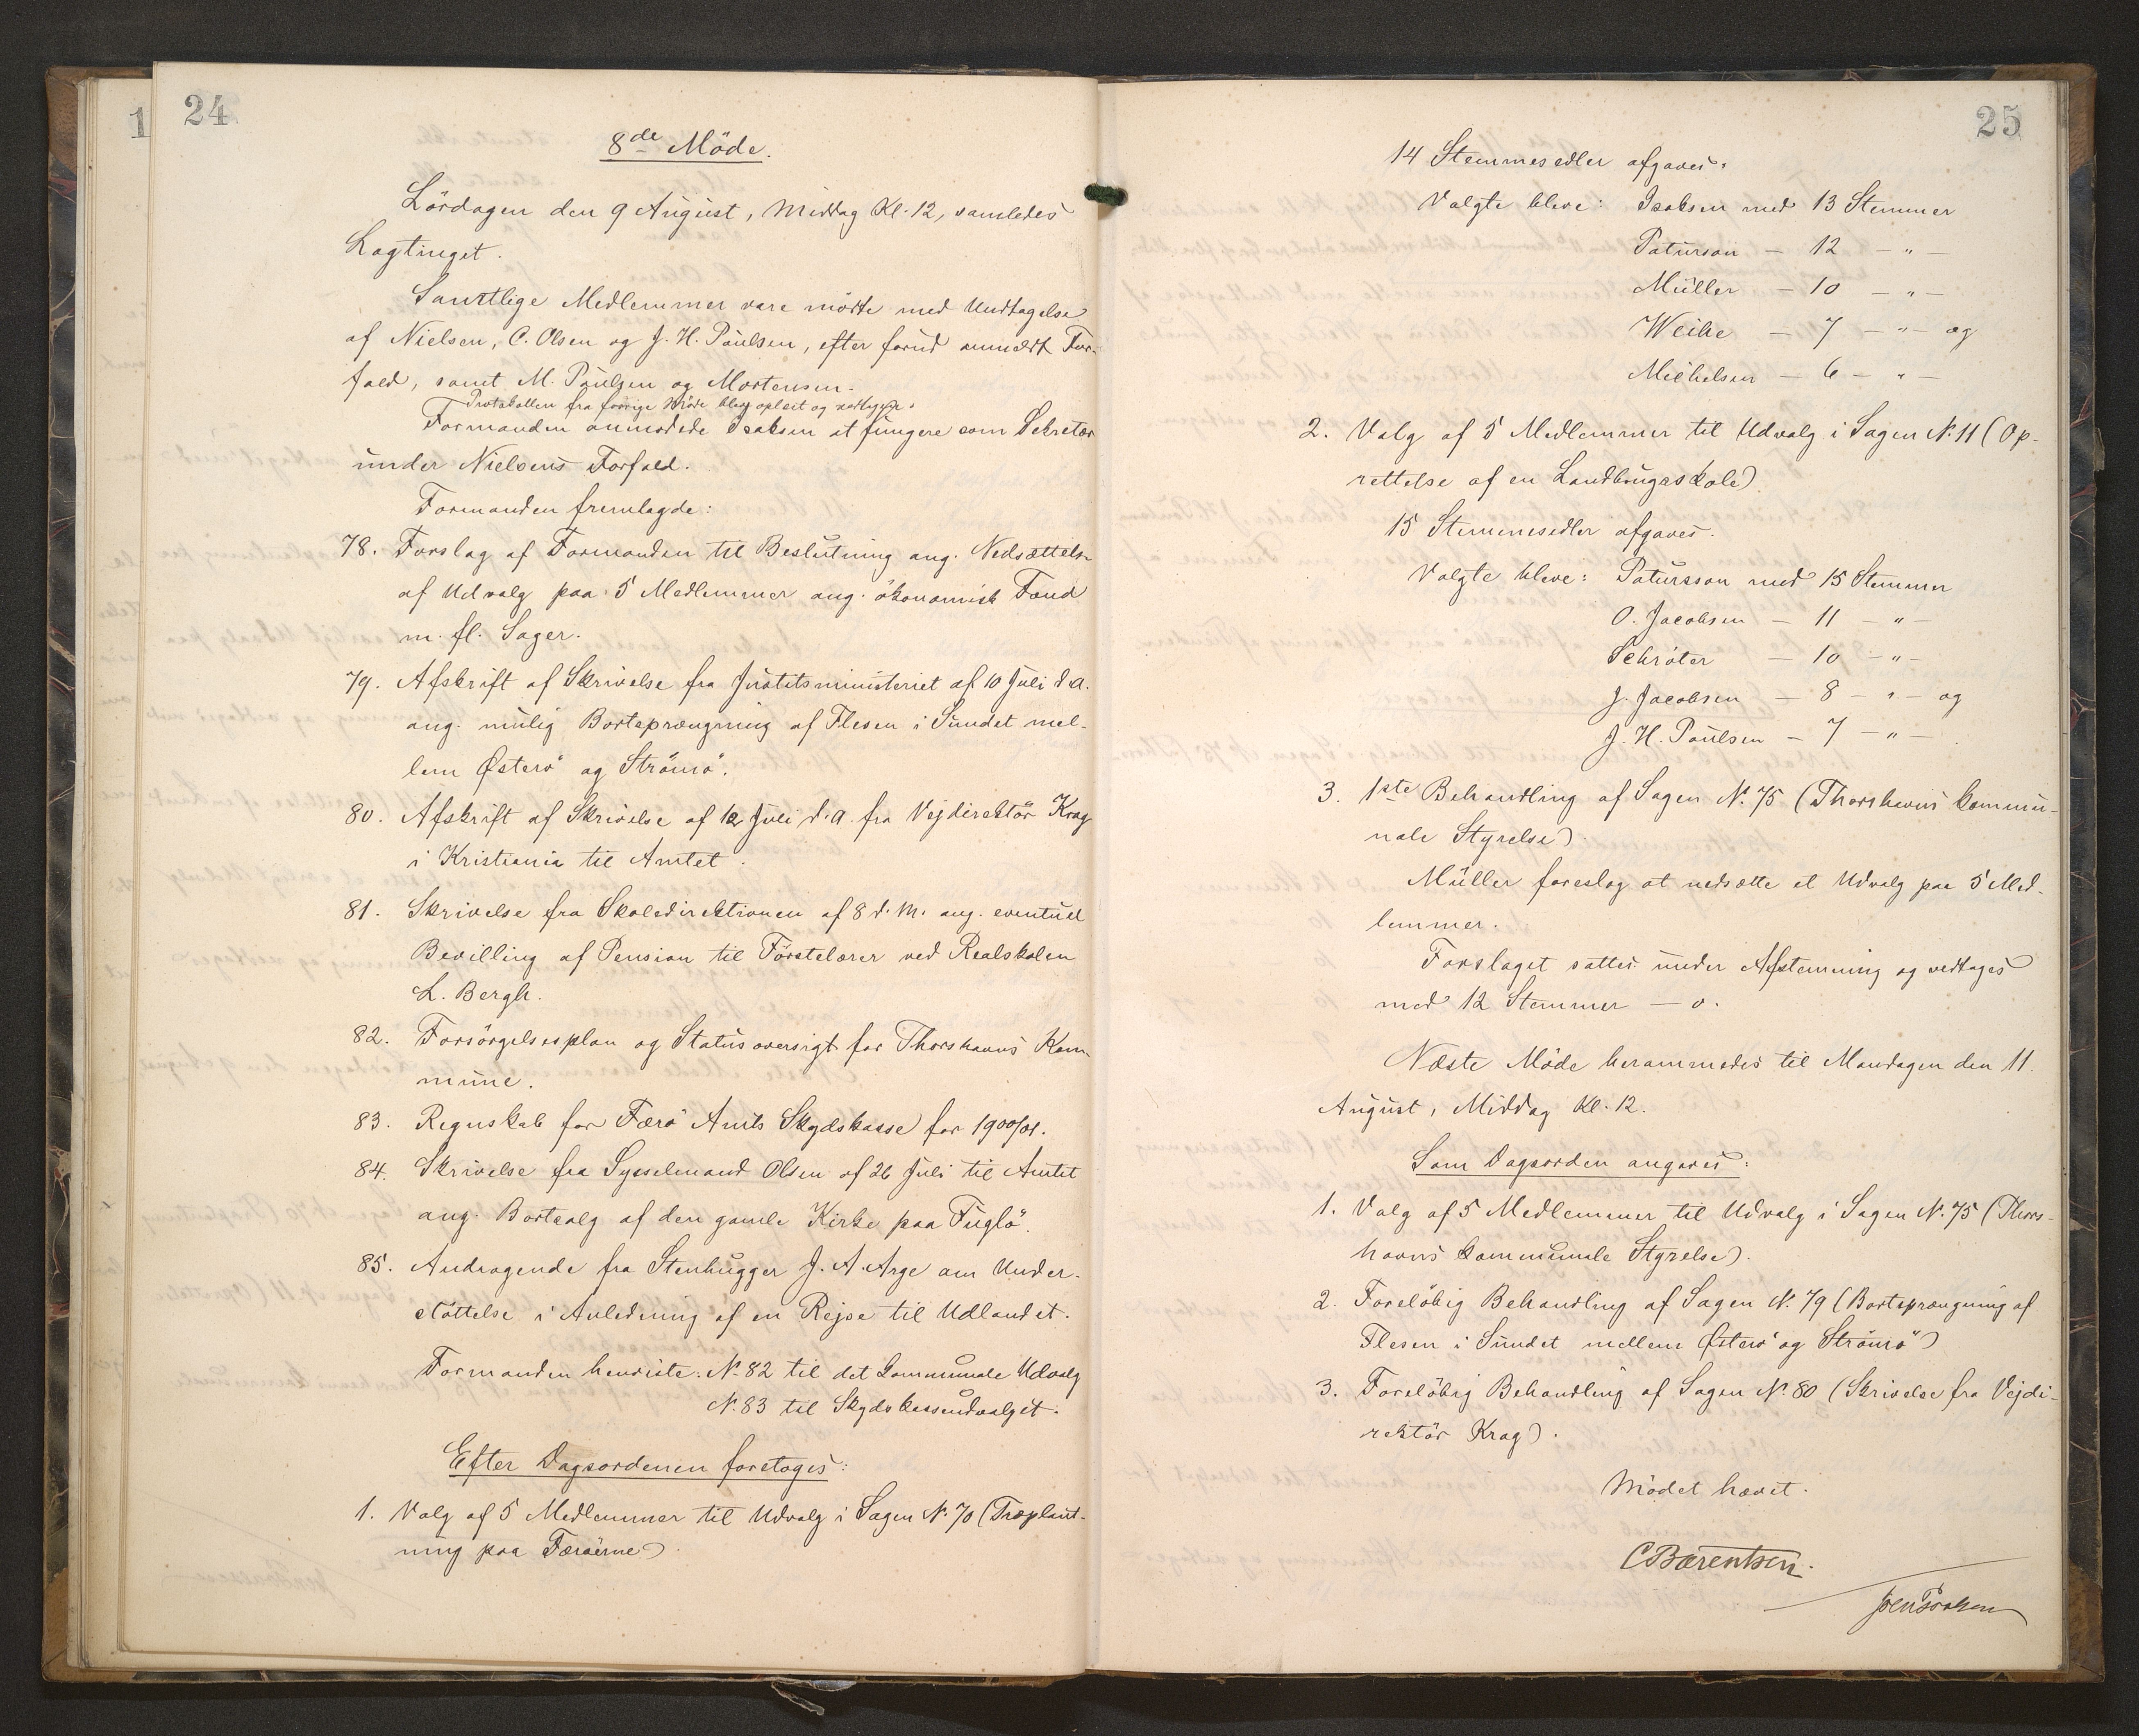 24
8de Möde.
Lördagen den 9 August, Middag Kl. 12, samledes
Lagtinget.
Samtlige Medlemmer vare mödte med Undtagelse
af Nielsen, C. Olsen og J. H. Poulsen, efter forud anmeldt For-
fald, samt M. Poulsen og Mortensen.
Protokollen fra forrige Möde blev oplæst og vedtagen.
Formanden anmodede Isaksen at fungere som Sekretær
under Nielsens Forfald.
Formanden fremlagde:
78. Forslag af Formanden til Beslutning ang. Nedsættelse
af Udvalg paa 5 Medlemmer ang. ökonomisk Fond
m. fl. Sager.
79. Afskrift af Skrivelse fra Justitsministeriet af 10 Juli d. A.
ang. mulig Bortsprængning af Flesen i Sundet mel-
lem Österö og Strömö.
80. Afskrift af Skrivelse af 12 Juli d. A. fra Vejdirektör Krag
i Kristiania til Amtet.
81. Skrivelse fra Skoledirektionen af 8 d. M. ang. eventuel
Bevilling af Pension til Förstelærer ved Realskolen
L. Bergh.
82. Forsörgelsesplan og Statusoversigt for Thorshavns Kom-
mune.
83. Regnskab for Færö Amts Skydskasse for 1900/01.
84. Skrivelse fra Sysselmand Olsen af 26 Juli til Amtet
ang. Bortsalg af den gamle Kirke paa Fuglö.
85. Andragende fra Stenhugger J. A. Arge om Under-
støttelse i Anledning af en Rejse til Udlandet.
Formanden henviste: Nº 82 til det kommunale Udvalg
Nº 83 til Skydskasseudvalget.
Efter Dagsordenen foretoges:
1. Valg af 5 Medlemmer til Udvalg i Sagen Nº 70 (Træplant-
ning paa Færöerne)
25
14 Stemmesedler afgaves.
Valgte bleve: Isaksen med 13 Stemmer
Patursson — 12 — " —
Müller — 10 — " —
Weihe — 7 — " — og
Michelsen — 6 — " —
2. Valg af 5 Medlemmer til Udvalg i Sagen Nº 11 (Op-
rettelse af en Landbrugsskole)
15 Stemmesedler afgaves.
Valgte bleve: Patursson med 15 Stemmer
O. Jacobsen — 11 — " —
Schröter — 10 — " —
J. Jacobsen — 8 — " — og
J. H. Poulsen — 7 — " —
3. 1ste Behandling af Sagen Nº 75 (Thorshavns kommu-
nale Styrelse)
Müller foreslog at nedsætte et Udvalg paa 5 Med-
lemmer.
Forslaget sattes under Afstemning og vedtoges
med 12 Stemmer — 0.
Næste Möde berammedes til Mandagen den 11.
August, Middag Kl. 12.
Som Dagsorden angaves:
1. Valg af 5 Medlemmer til Udvalg i Sagen Nº 75 (Thors-
havns kommunale Styrelse).
2. Foreløbig Behandling af Sagen Nº 79 (Bortsprængning af
Flesen i Sundet mellem Österö og Strömö)
3. Foreløbig Behandling af Sagen Nº 80 (Skrivelse fra Vejdi-
rektör Krag).
Mödet hævet.
CBærentsen.